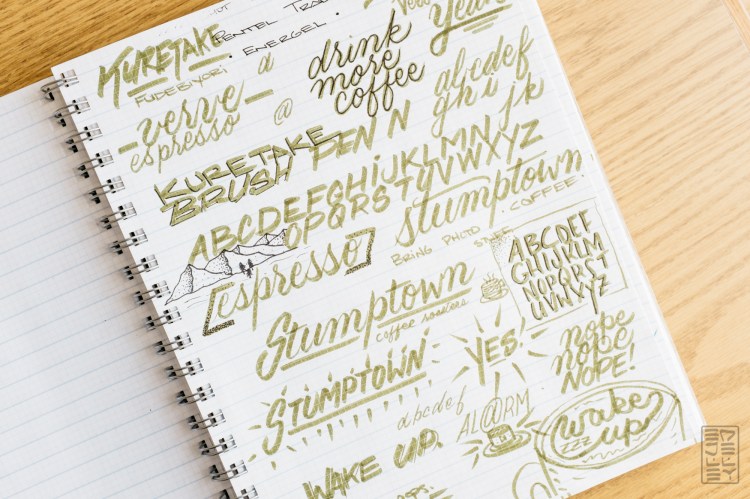 KURETAKE
FUDEBIYORI
PENTEL
· ENERGEL ·
a
@
drink
more
coffee
yeah
- verve -
espresso
abcdef
gh i jk
KURETAKE
BRUSH PEN N
ABCDEFGHIJKLMN
OPQRSTUVWXYZ
stumptown
· COFFEE ·
BRING PHOTO
[espresso]
ABCDEF
GHIJKLM
NOPQRS
UVWXYZ
Stumptown
coffee roasters
STUMPTOWN
YES!
nope
nope
NOPE!
abcdef
AL@RM
WAKE UP.
wake
up
zzz